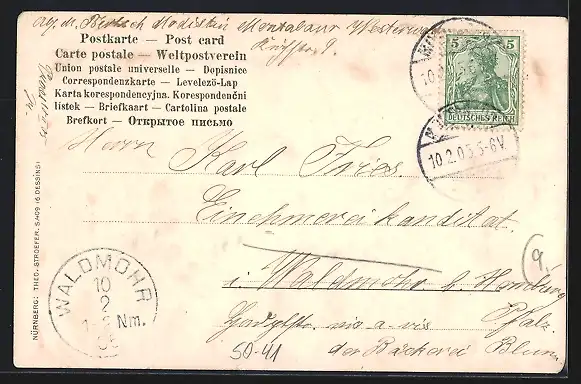 Modistin Montabaur Westerwald
Postkarte — Post card
Carte postale — Weltpostverein
Union postale universelle — Dopisnice
Correspondenzkarte — Levelező-Lap
Karta korespondencyjna. Korespondenční
listek — Briefkaart — Cartolina postale
Brefkort — Открытое письмо
5 5
DEUTSCHES REICH
10.2.05 5-6V.
Herrn
Karl Fries
i. Waldmohr b. Homburg
Pfalz
vis a vis
der Bäckerei Blum
9.
50-41
WALDMOHR
10
2
Nm.
05
NÜRNBERG: THEO. STROEFER, S.409 (6 DESSINS)